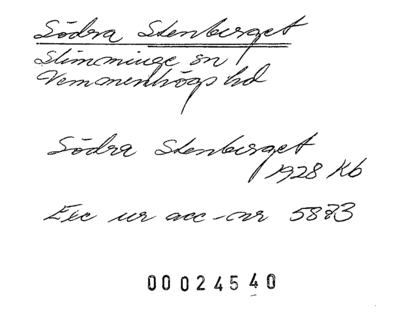 Södra Stenberget
Slimminge sn
Vemmenhögs hd
Södra Stenberget
1928 Kb
Exc ur acc-nr 5873
00024540